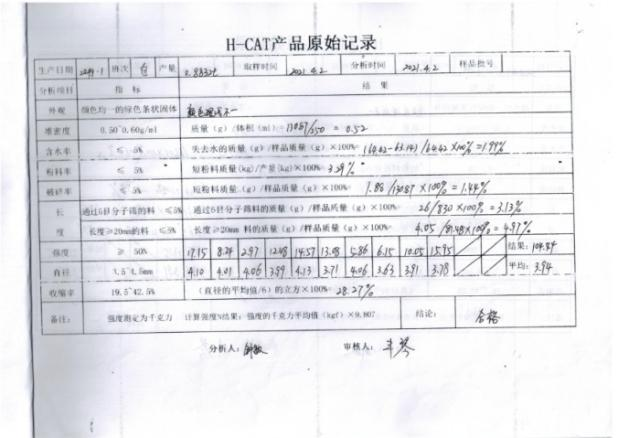 H-CAT产品原始记录
生产日期 班次 产量 2.8832t 取样时间 2021.4.2 分析时间 2021.4.2 样品批号
分析项目 指标 结果
外观 颜色均一的绿色条状固体 颜色 不一
堆密度 0.50~0.60g/ml 质量（g）/体积（ml）= /250 = 0.52
含水率 ≤ 5% 失去水的质量（g）/样品质量（g）×100% (64.42-63.14)/64.42×100%=1.99%
粉料率 ≤ 5% 短粉料质量(kg)/产量(kg)×100% 3.29%
破碎率 ≤ 5% 短粉料质量（g）/样品质量（g）×100% 1.88/130.87×100%=1.44%
长度 通过6目分子筛的料 ≤5% 通过6目分子筛料的质量（g）/样品质量（g）×100% 26/830×100%=3.13%
长度≥20mm的料 ≤5% 长度≥20mm 料的质量（g）/样品质量（g）×100% 4.05/81.48×100%=4.97%
强度 ≥ 50% 17.15 8.24 2.97 12.08 14.57 13.08 5.86 6.15 10.05 15.95 结果：104.84
直径 3.5~4.5mm 4.10 4.01 4.06 3.89 4.13 3.71 4.06 3.63 3.91 3.78 平均：3.94
收缩率 19.5~42.5% （直径的平均值/6）的立方×100% 28.27%
备注： 强度测定为千克力 计算强度N结果：强度的千克力平均值（kgf）×9.807 结论： 合格
分析人： 审核人：